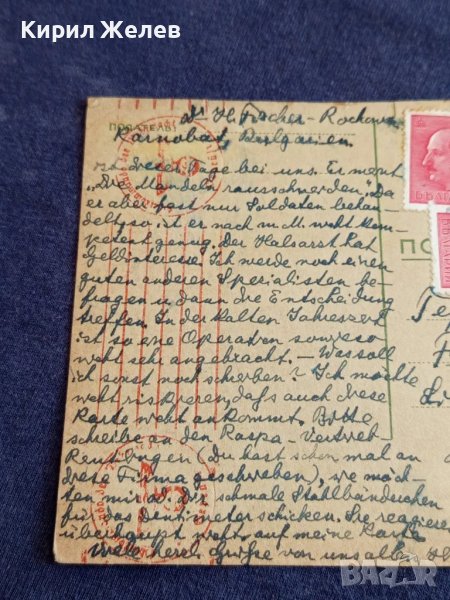 Кирил Желев
Dr H. Fischer-
ПОДАТЕЛЬ:
Karnobat, Bulgarien
ist dieser Tage bei uns. Er meint
"Die Mandeln rausschneiden". Da
er aber fast nur Soldaten behan
delt, so ist er nach m. M. nicht kom
petent genug. Der Halsarzt hat
Geldinteresse. Ich werde noch einen
guten anderen Spezialisten be-
fragen u. dann die Entscheidung
treffen. In der kalten Jahreszeit
ist so eine Operation sowieso
nicht sehr angebracht. - Was soll
ich sonst noch schreiben? Ich möchte
nicht riskieren, dass auch diese
Karte nicht ankommt. Bitte
schreibe an den Raspa-Vertrieb
Reutlingen (du hast schon mal an
diese Firma geschrieben), sie möch-
ten mir od. Dir schmale Stahlbändchen
für das Dentimeter schicken. Sie reagieren
überhaupt nicht auf meine Karte
Viele herzl. Grüße von uns allen
БЪЛГАРИЯ
ПО
bazar.bg